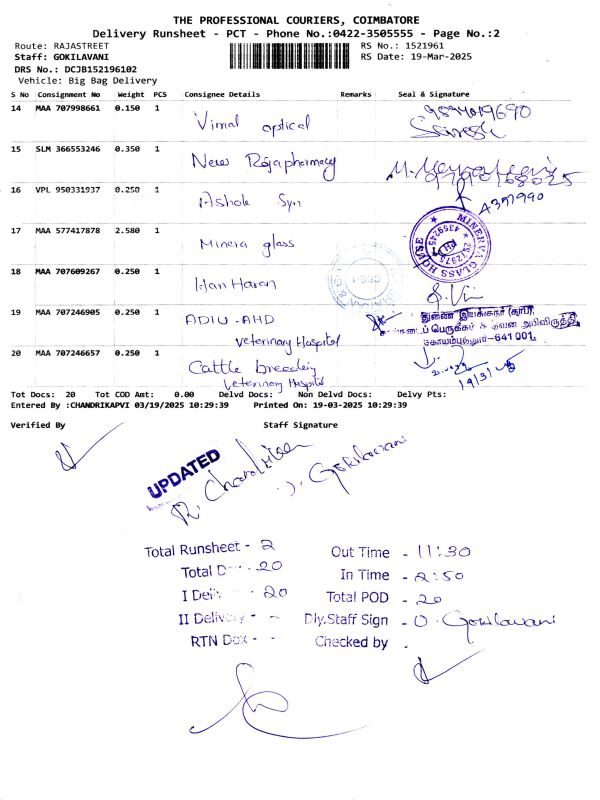 THE PROFESSIONAL COURIERS, COIMBATORE
Delivery Runsheet - PCT - Phone No.:0422-3505555 - Page No.:2
Route: RAJASTREET RS No.: 1521961
Staff: GOKILAVANI RS Date: 19-Mar-2025
DRS No.: DCJB152196102
Vehicle: Big Bag Delivery
S No Consignment No Weight PCS Consignee Details Remarks Seal & Signature
14 MAA 707998661 0.150 1 Vimal optical
15 SLM 366553246 0.350 1 New Raja pharmacy
16 VPL 950331937 0.250 1 Ashok Syn
17 MAA 577417878 2.580 1 Minera glass
MINERVA GLASS HOUSE
18 MAA 707609267 0.250 1
19 MAA 707246905 0.250 1 ADIU-AHD
veterinary Hospital
கோயம்புத்தூர்-641 001.
20 MAA 707246657 0.250 1 Cattle breeding
veterinary Hospital
Tot Docs: 20 Tot COD Amt: 0.00 Delvd Docs: Non Delvd Docs: Delvy Pts:
Entered By :CHANDRIKAPVI 03/19/2025 10:29:39 Printed On: 19-03-2025 10:29:39
Verified By Staff Signature
UPDATED
Gokilavani
Total Runsheet - 2 Out Time - 11:30
Total 20 In Time - 2:50
I 20 Total POD - 20
II Delivery - - Dly.Staff Sign - O. Gokilavani
RTN Dox - - Checked by